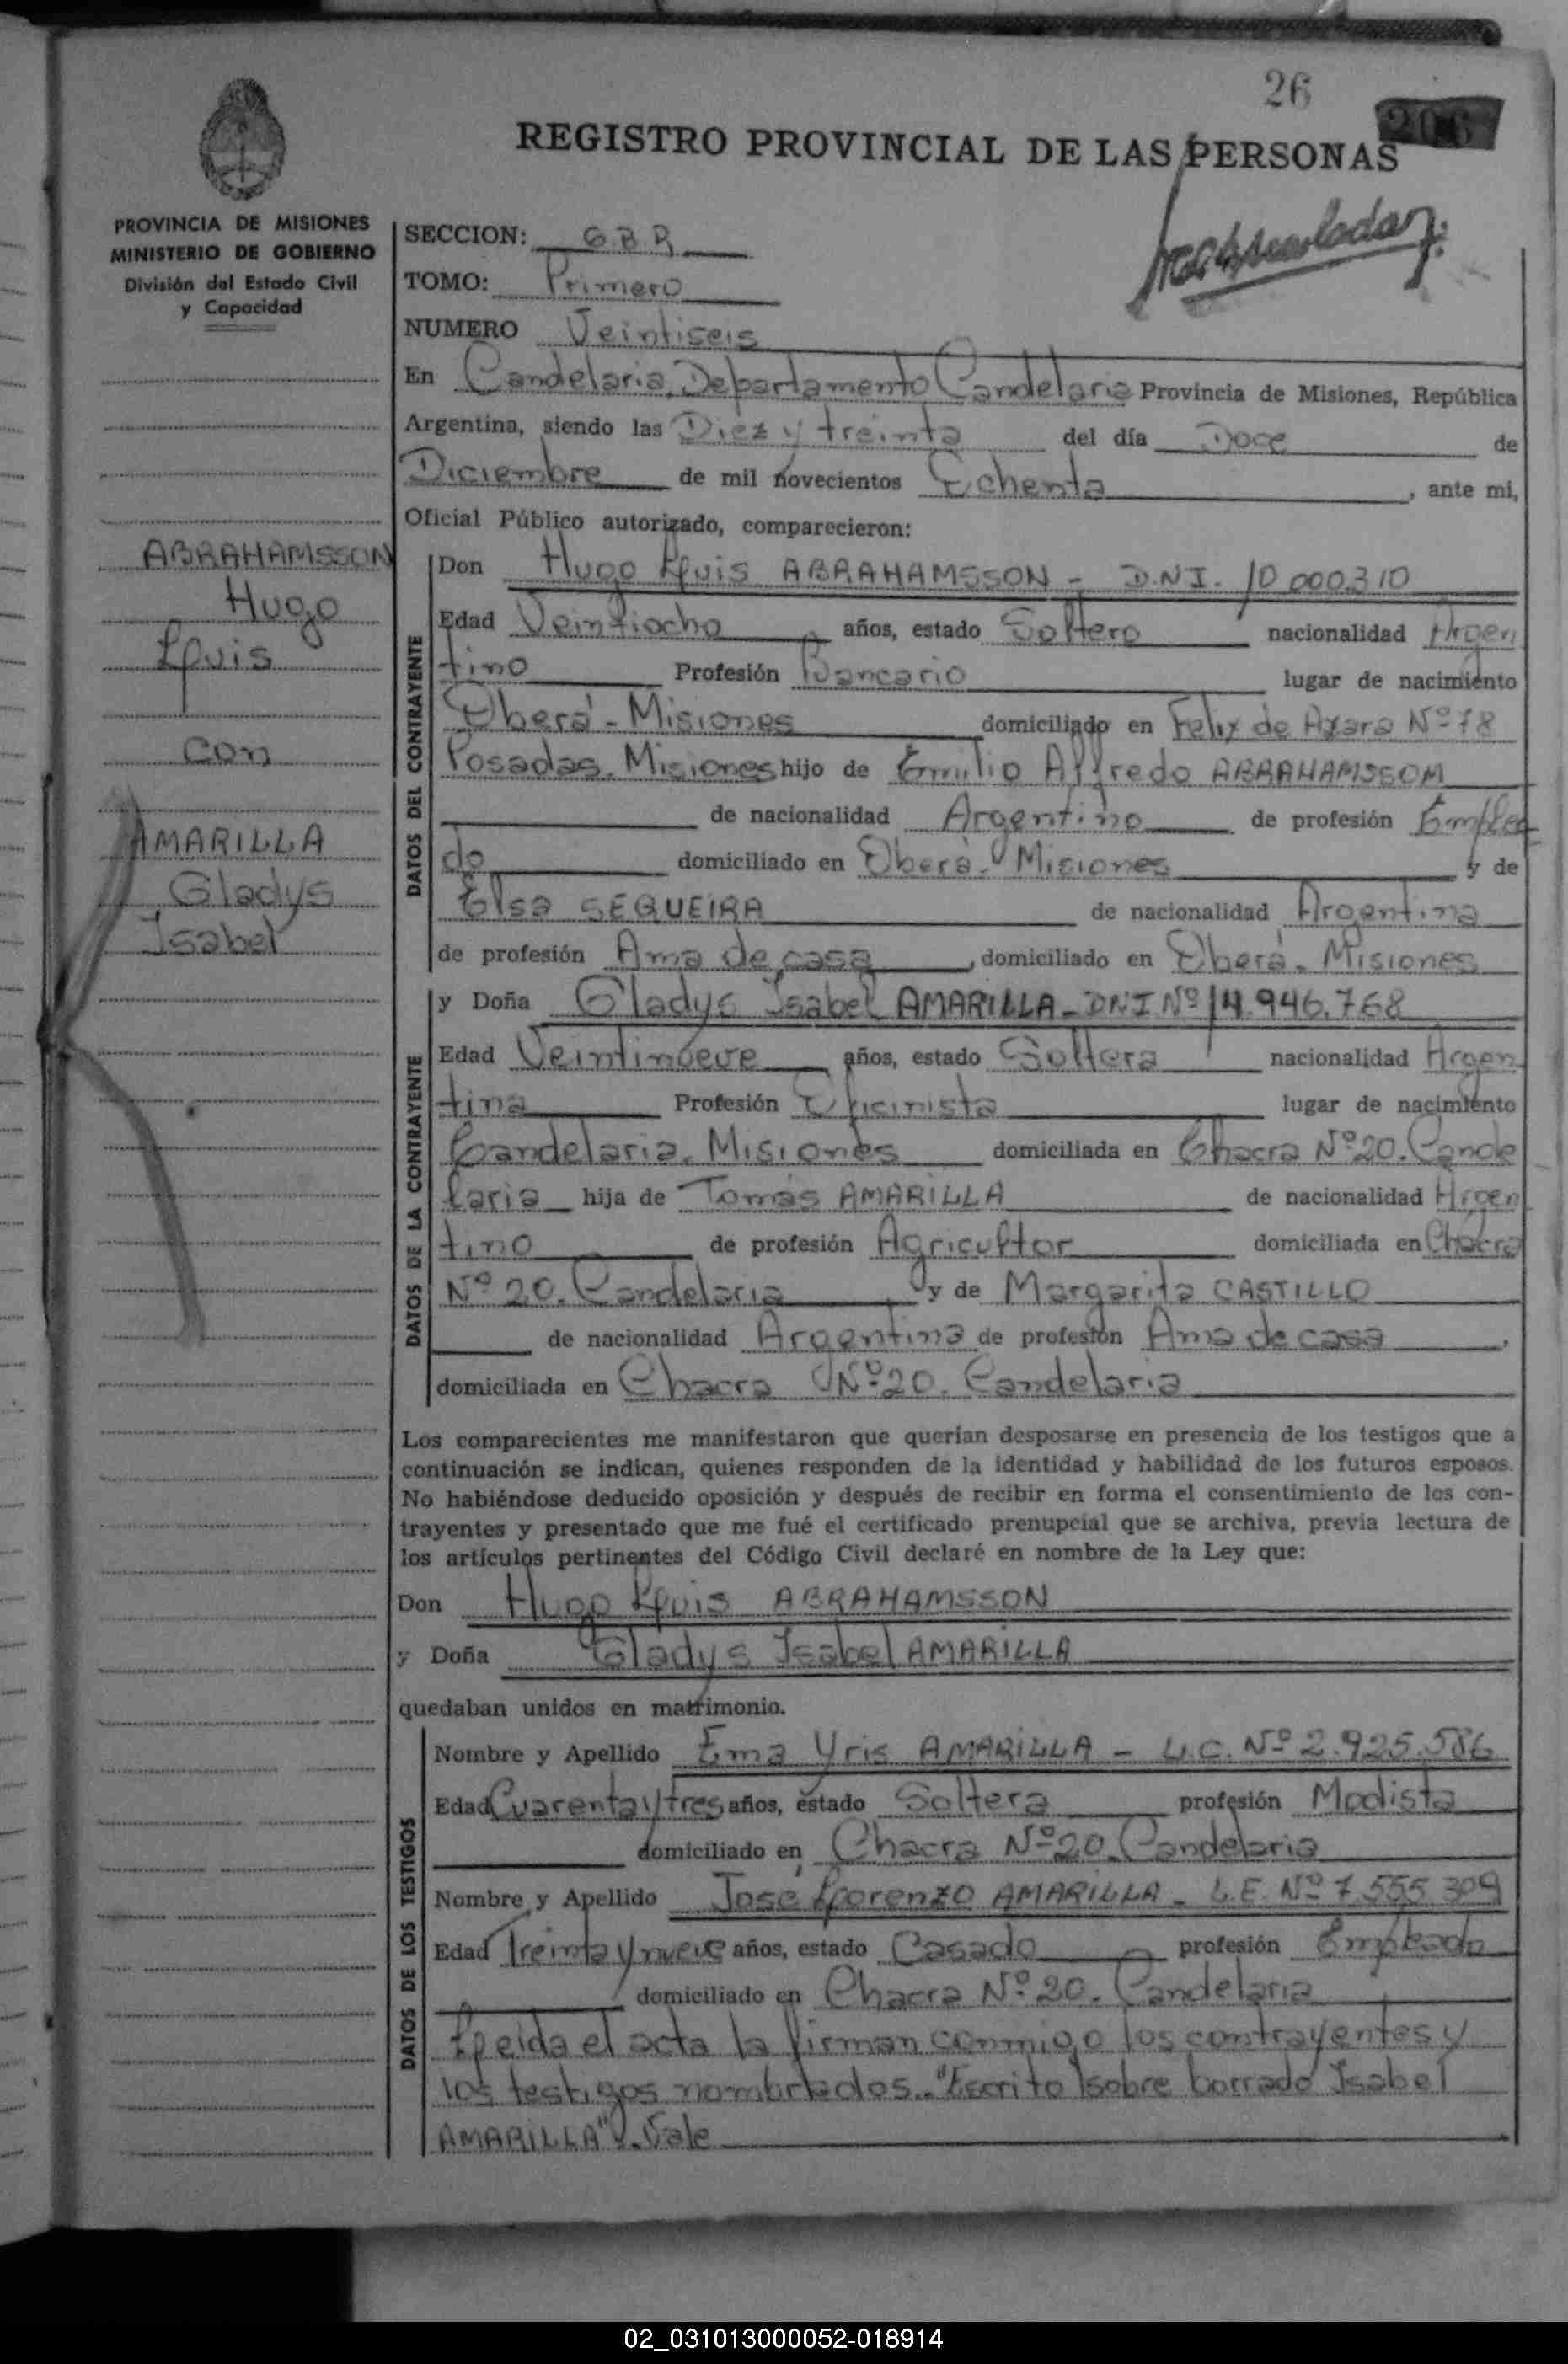 26
206
REGISTRO PROVINCIAL DE LAS PERSONAS
PROVINCIA DE MISIONES
MINISTERIO DE GOBIERNO
División del Estado Civil
y Capacidad
ABRAHAMSSON
Hugo
Luis
con
AMARILLA
Gladys
Isabel
SECCION: G.B.R
TOMO: Primero
NUMERO Veintiseis
En Candelaria, Departamento Candelaria Provincia de Misiones, República
Argentina, siendo las Diez y treinta del día Doce de
Diciembre de mil novecientos Ochenta, ante mi,
Oficial Público autorizado, comparecieron:
DATOS DEL CONTRAYENTE
Don Hugo Luis ABRAHAMSSON - D.N.I. 10.000.310
Edad Veintiocho años, estado Soltero nacionalidad Argen
tino Profesión Bancario lugar de nacimiento
Oberá - Misiones domiciliado en Felix de Azara Nº 78
Posadas. Misiones hijo de Emilio Alfredo ABRAHAMSSOM
de nacionalidad Argentino de profesión Emplea
do domiciliado en Oberá. Misiones y de
Elsa SEQUEIRA de nacionalidad Argentina
de profesión Ama de casa, domiciliado en Oberá. Misiones
DATOS DE LA CONTRAYENTE
y Doña Gladys Isabel AMARILLA - DNI Nº 14.946.768
Edad Veintinueve años, estado Soltera nacionalidad Argen
tina Profesión Oficinista lugar de nacimiento
Candelaria. Misiones domiciliada en Chacra Nº 20. Cande
laria hija de Tomás AMARILLA de nacionalidad Argen
tino de profesión Agricultor domiciliada en Chacra
Nº 20. Candelaria, y de Margarita CASTILLO
de nacionalidad Argentina de profesión Ama de casa,
domiciliada en Chacra Nº 20. Candelaria
Los comparecientes me manifestaron que querían desposarse en presencia de los testigos que a
continuación se indican, quienes responden de la identidad y habilidad de los futuros esposos.
No habiéndose deducido oposición y después de recibir en forma el consentimiento de los con-
trayentes y presentado que me fué el certificado prenupcial que se archiva, previa lectura de
los artículos pertinentes del Código Civil declaré en nombre de la Ley que:
Don Hugo Luis ABRAHAMSSON
y Doña Gladys Isabel AMARILLA
quedaban unidos en matrimonio.
DATOS DE LOS TESTIGOS
Nombre y Apellido Ema Yris AMARILLA - L.C. Nº 2.925.586
Edad Cuarenta y tres años, estado Soltera profesión Modista
domiciliado en Chacra Nº 20. Candelaria
Nombre y Apellido José Lorenzo AMARILLA - L.E. Nº 7.555.309
Edad Treinta y nueve años, estado Casado profesión Empleado
domiciliado en Chacra Nº 20. Candelaria
Leida el acta la firman conmigo los contrayentes y
los testigos nombrados. "Escrito sobre borrado Isabel
AMARILLA". Vale
02_031013000052-018914